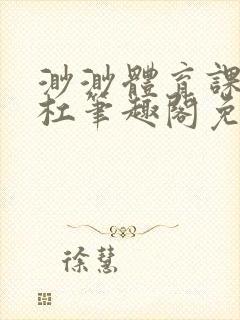 渺渺體育課
杜筆趣閣免
徐慧